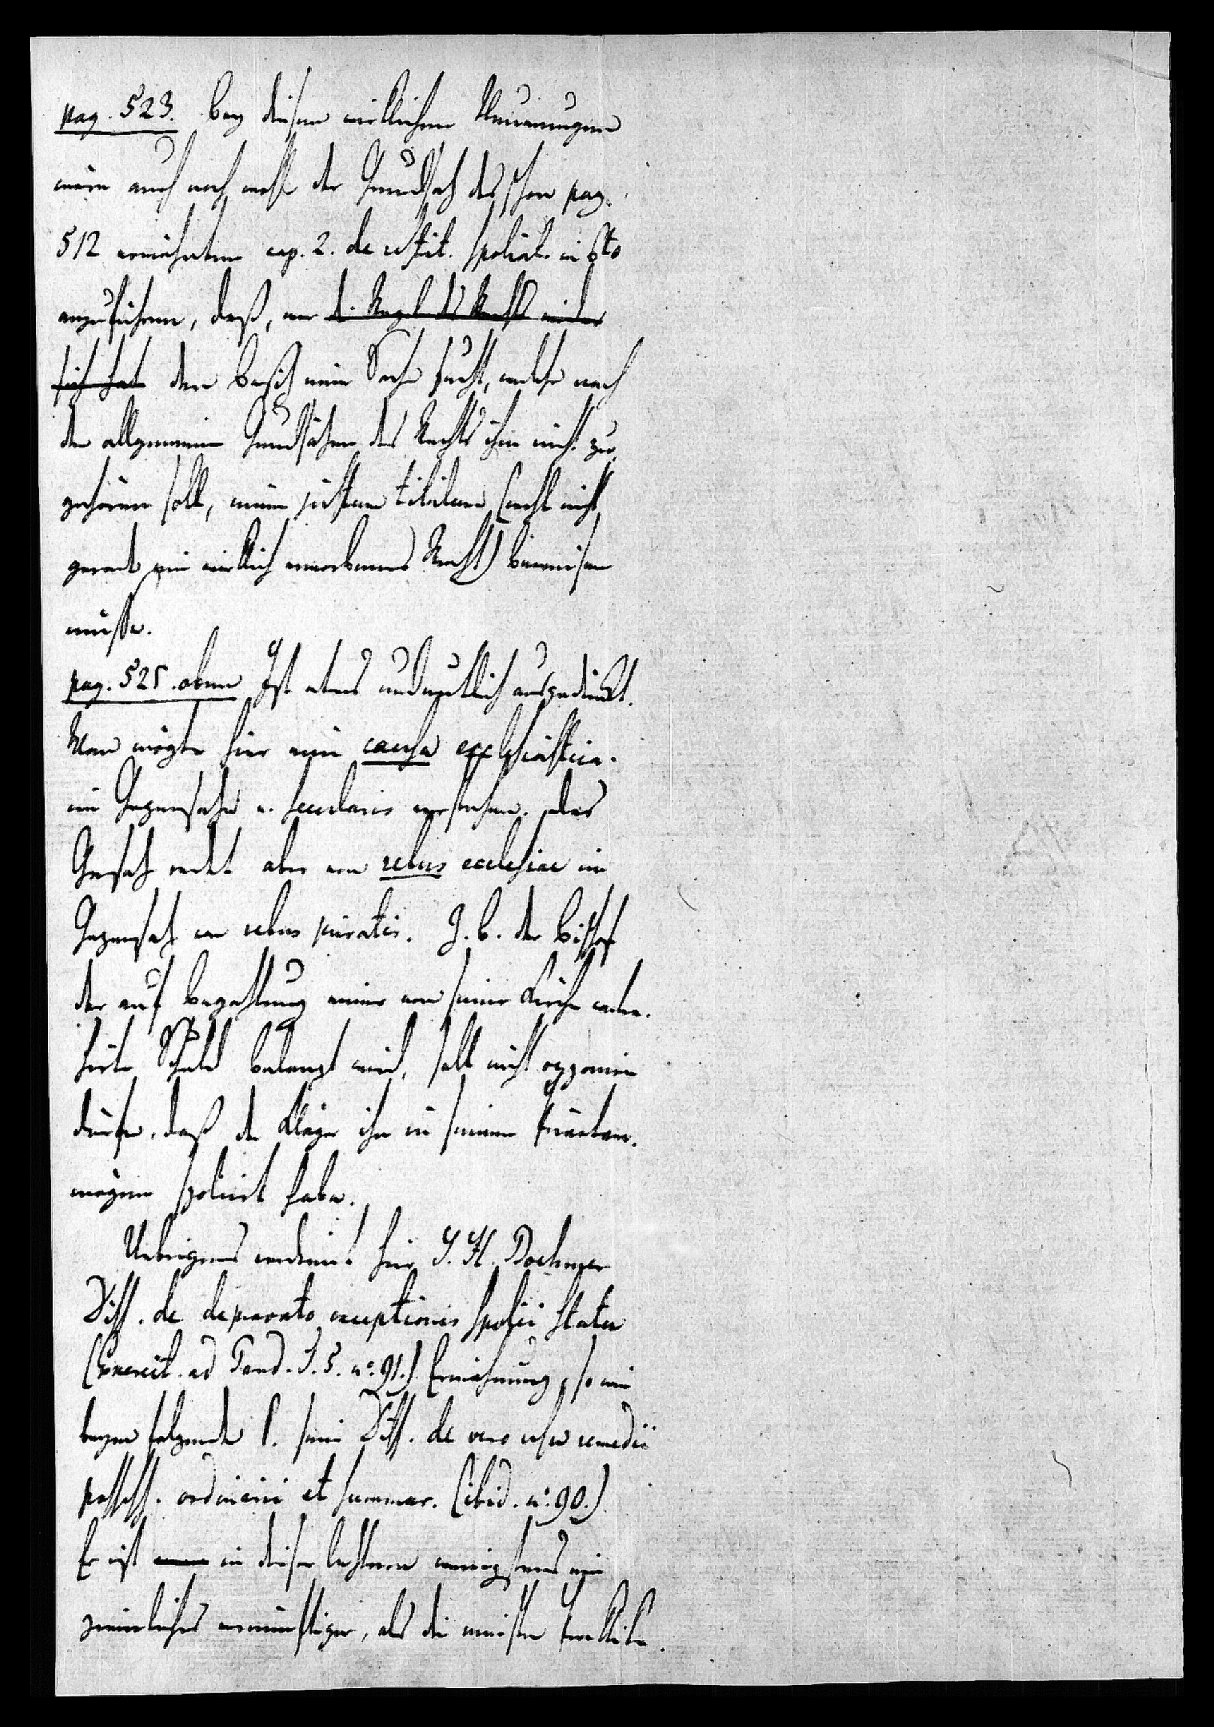 pag. 523. bey diesen wirklichen Neuerungen
wäre auch noch wohl der Grundsatz des schon pag.
512 erwähnten cap. 2. de restit. spoliat. in 6to
anzuführen, daß, wer d. Regel des Rechts wider
sich hat den Besitz einer Sache sucht, welche nach
den allgemeinen Grundsätzen des Rechts ihm nicht zu
gehören soll, einen justum titulum (wohl nicht
gerade ein wirklich erworbenes Recht) beweisen
müsse.
pag. 525. oben Ist etwas undeutlich ausgedrückt.
Man mögte hier eine causa ecclesiastica
im Gegensatze v. secularis verstehen. Das
Gesetz redet aber von rebus ecclesiae im
Gegensatz von rebus privatis. Z. b. der Bischof
der auf Bezahlung einer von seiner Kirche contra-
hirten Schuld belangt wird, soll nicht opponiren
dürfen, daß der Kläger ihn in seinem Privatver-
mögen spoliirt habe.
Uebrigens verdient hier J. H. Boehmer
Diss. de depravato exceptionis spolii statu
(Exercit. ad Pand. T. 5. n: 91.) Erwähnung, so wie
beym folgenden §. seine Diss. de vero usu remedii
possess. ordinarii et summar. (ibid. n: 90.)
Er ist in dieser letzteren wenigstens um
ziemliches vernünftiger, als die meisten